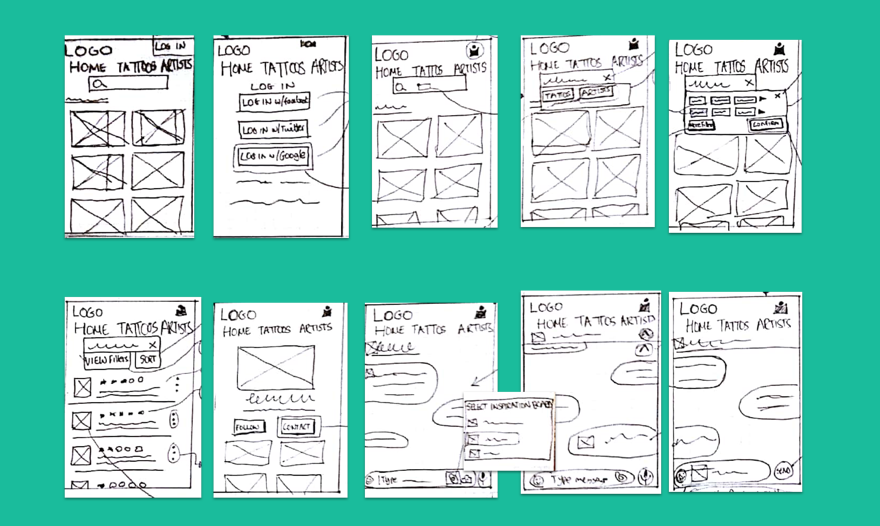 LOGO
LOG IN
HOME TATTOOS ARTISTS
LOGO
HOME TATTOOS ARTISTS
LOG IN
LOG IN W/Facebook
LOG IN W/Twitter
LOG IN W/Google
LOGO
HOME TATTOS ARTISTS
LOGO
HOME TATTOS ARTISTS
X
TATTOS ARTISTS
LOGO
HOME TATTOS ARTISTS
X
X
CONFIRM
LOGO
HOME TATTOOS ARTISTS
X
VIEW Filters SORT
LOGO
HOME TATTOS ARTISTS
FOLLOW CONTACT
LOGO
HOME TATTOS ARTISTS
SELECT INSPIRATION BOARD
Type
LOGO
HOME TATTOS ARTISTS
Type message
LOGO
HOME TATTOS ARTISTS
SEND